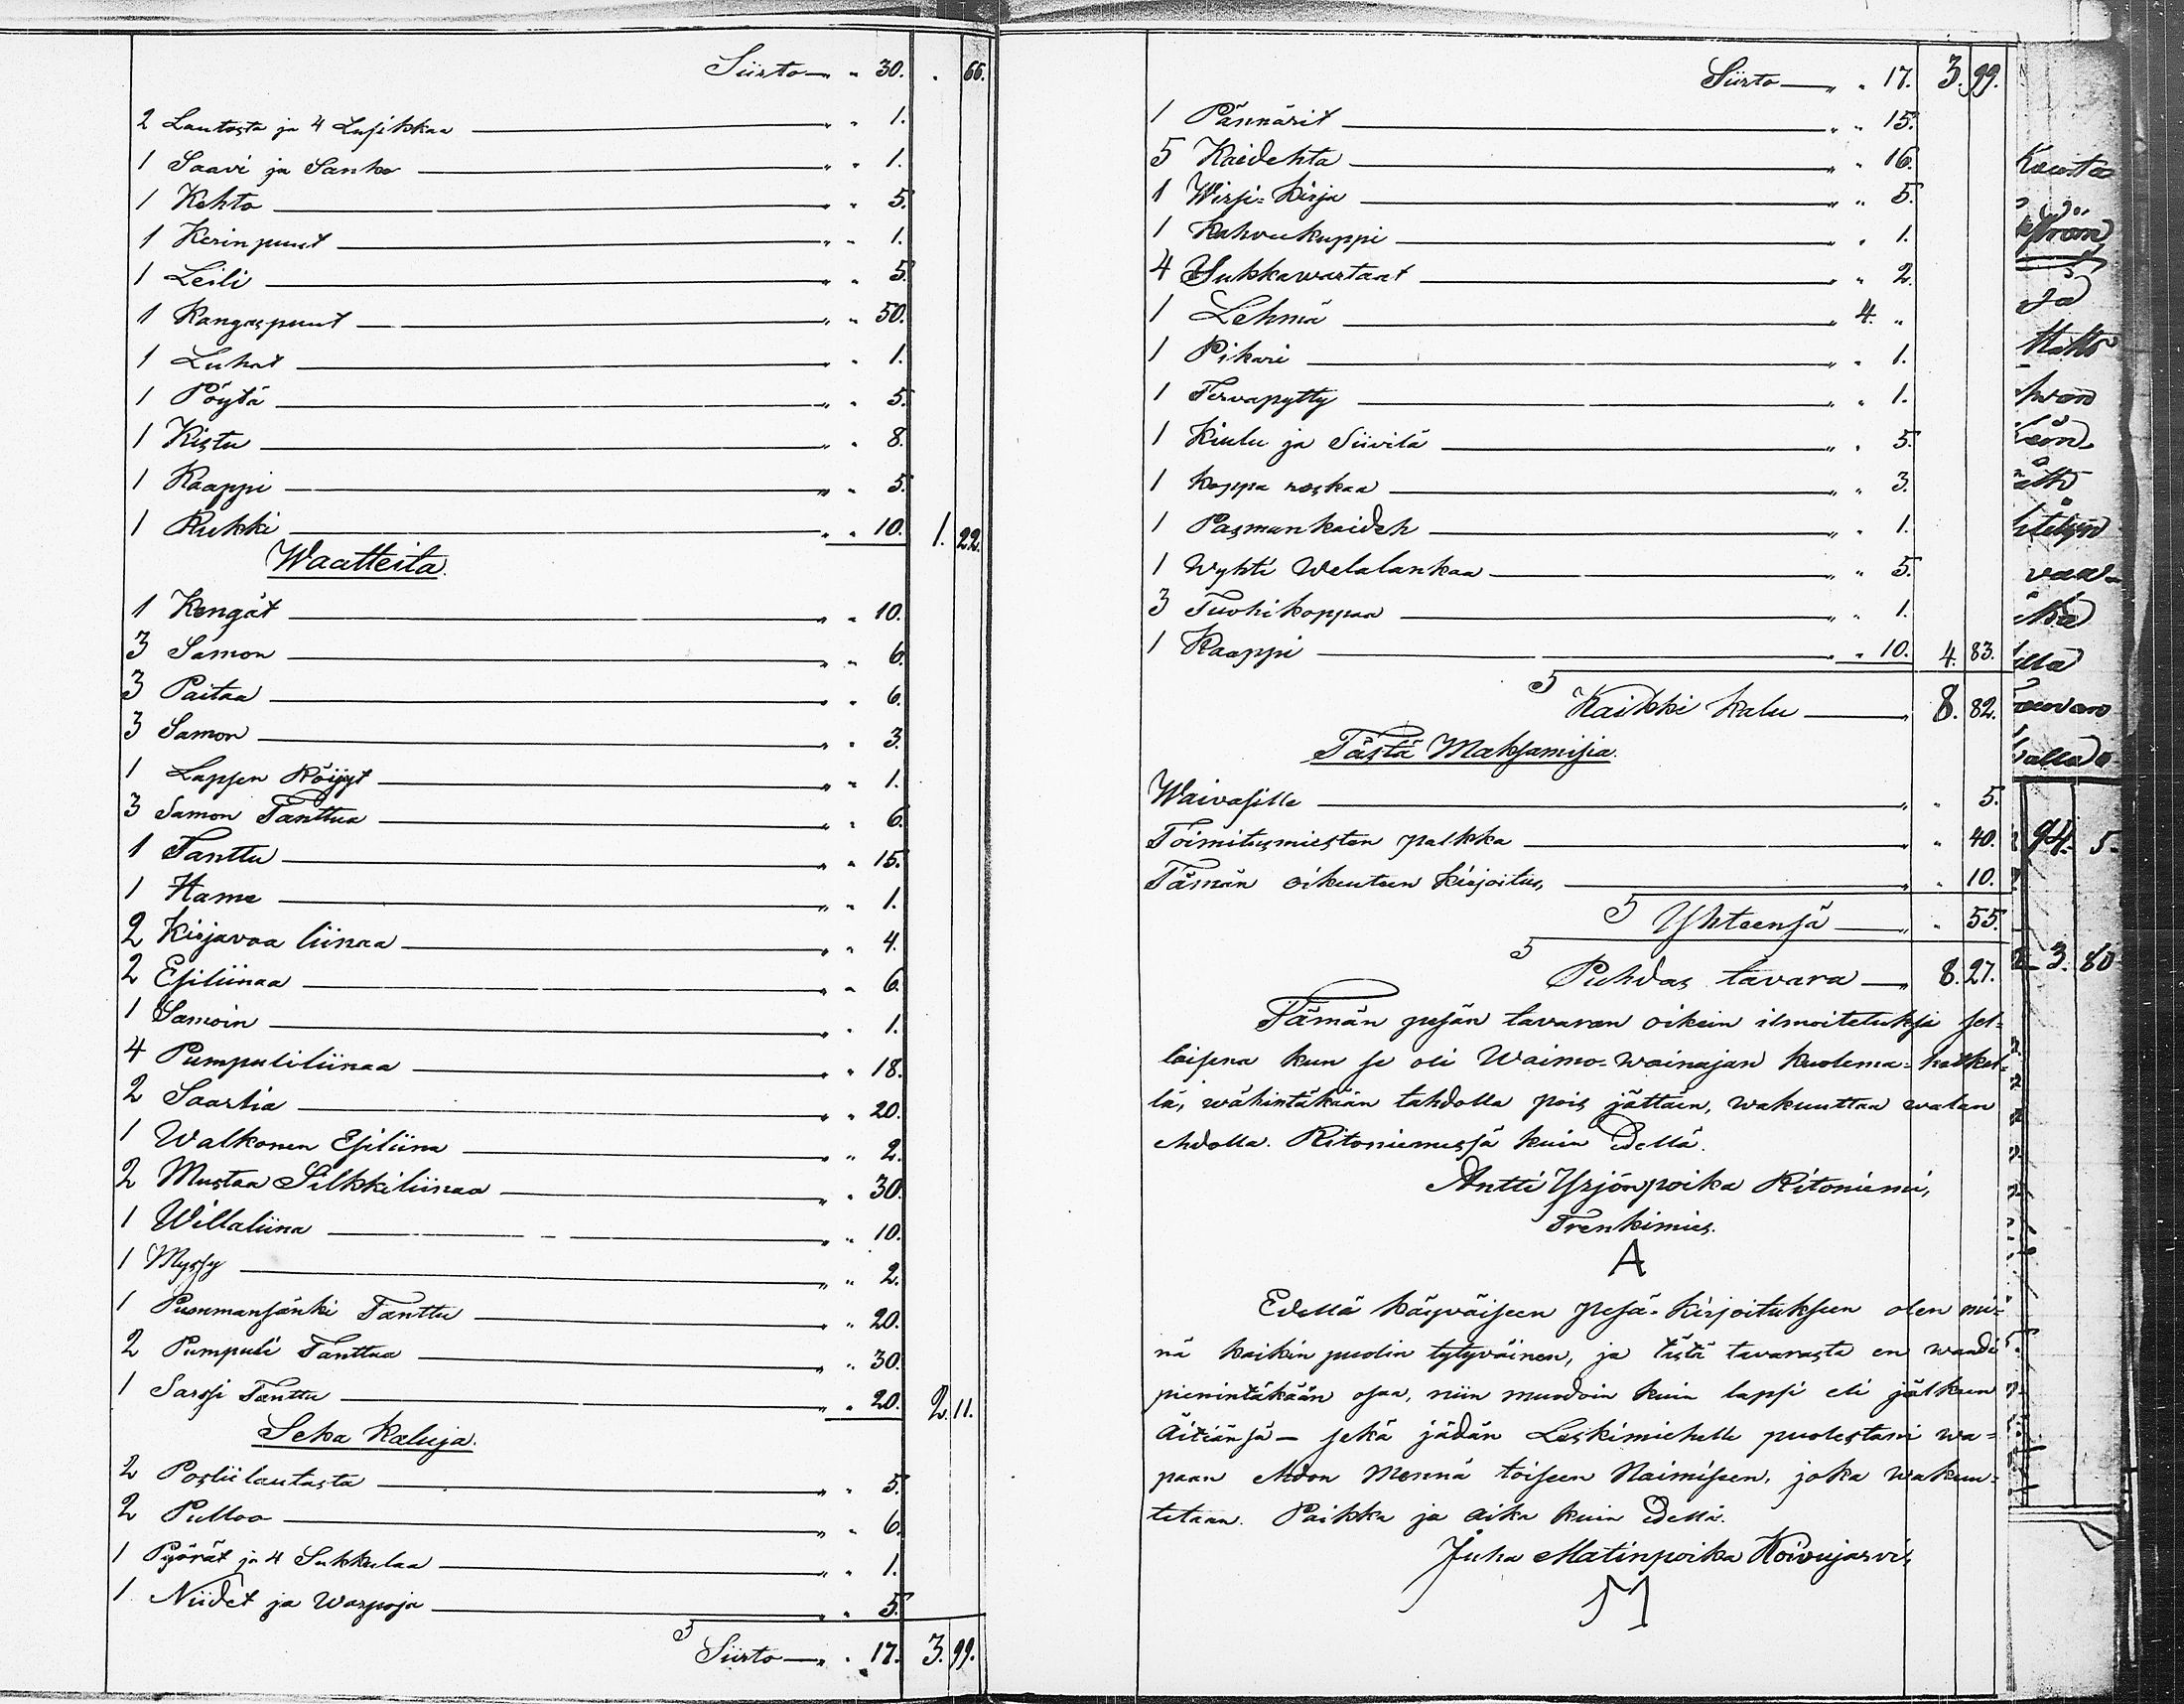 Siirto — „ 30. „ 66.
2 Lautasta ja 4 Lusikkaa — „ „ 1.
1 Saavi ja Sanko — „ „ 1.
1 Kehto — „ „ 5.
1 Kerinpuut — „ „ 1.
1 Leili — „ „ 5.
1 Kangaspuut — „ „ 50.
1 Luhat — „ „ 1.
1 Pöytä — „ „ 5.
1 Kistu — „ „ 8.
1 Kaappi — „ „ 5.
1 Rukki — „ „ 10. 1. 22.
Waatteita.
1 Kengät — „ „ 10.
3 Samon — „ „ 6.
3 Paitaa — „ „ 6.
3 Samon — „ „ 3.
1 Lapsen Röijyt — „ „ 1.
3 Samon Tanttua — „ „ 6.
1 Tanttu — „ „ 15.
1 Hame — „ „ 1.
2 Kirjavaa liinaa — „ „ 4.
2 Esiliinaa — „ „ 6.
1 Samoin — „ „ 1.
4 Pumpuliliinaa — „ „ 18.
2 Saartia — „ „ 20.
1 Walkonen Esiliina — „ „ 2.
2 Mustaa Silkkiliinaa — „ „ 30.
1 Willaliina — „ „ 10.
1 Myssy — „ „ 2.
1 Puonmansänki Tanttu — „ „ 20.
2 Pumpuli Tanttua — „ „ 30.
1 Sarssi Tanttu — „ „ 20. 2. 11.
Seka Kaluja.
2 Posliilautasta — „ „ 5.
2 Pulloa — „ „ 6.
1 Pyörät ja 4 Sukkulaa — „ „ 1.
1 Niidet ja Warpoja — „ „ 5.
Siirto — „ „ 17. 3. 99.
Siirto — „ „ 17. 3. 99.
1 Pännärit — „ „ 15.
5 Kaidehta — „ „ 16.
1 Wirsi-Kirja — „ „ 5.
1 Kahveekuppi — „ „ 1.
4 Sukkawartaat — „ „ 2.
1 Lehmä — „ 4. „
1 Pikari — „ „ 1.
1 Tervapytty — „ „ 1.
1 Kiulu ja Siivilä — „ „ 5.
1 Koppa roskaa — „ „ 3.
1 Pasmankaideh — „ „ 1.
1 Wyhti Welalankaa — „ „ 5.
3 Tuohikoppaa — „ „ 1.
1 Kaappi — „ „ 10. 4. 83.
Kaikki Kalu — „ 8. 82.
Tästä Maksamisia.
Waivasille — „ „ 5.
Toimitusmiesten palkka — „ „ 40.
Tämän oikeuteen kirjoitus, — „ „ 10.
Yhteensä — „ „ 55.
Puhdas tavara — „ 8. 27.
Tämän pesän tavaran oikein ilmoitetuksi sel-
laisena kun se oli Waimo-wainajan kuolema-hetkel-
lä, wähintäkään tahdolla pois jättäin, wakuuttaa walan
ehdolla. Ritoniemessä kuin Edellä.
Antti Yrjönpoika Ritoniemi,
Trenkimies.
A
Edellä käypäiseen pesä-Kirjoitukseen olen mi-
nä kaikin puolin tytyväinen, ja tästä tavarasta en waadi
pienintäkään osaa, niin muodoin kuin lapsi eli jälkeen
äitiänsä — sekä jädän Leskimiehelle puolestani wa-
paan ehdon Mennä toiseen Naimiseen, joka wakuu-
tetaan. Paikka ja Aika kuin Edellä.
Juha Matinpoika Koivujarvi,
M